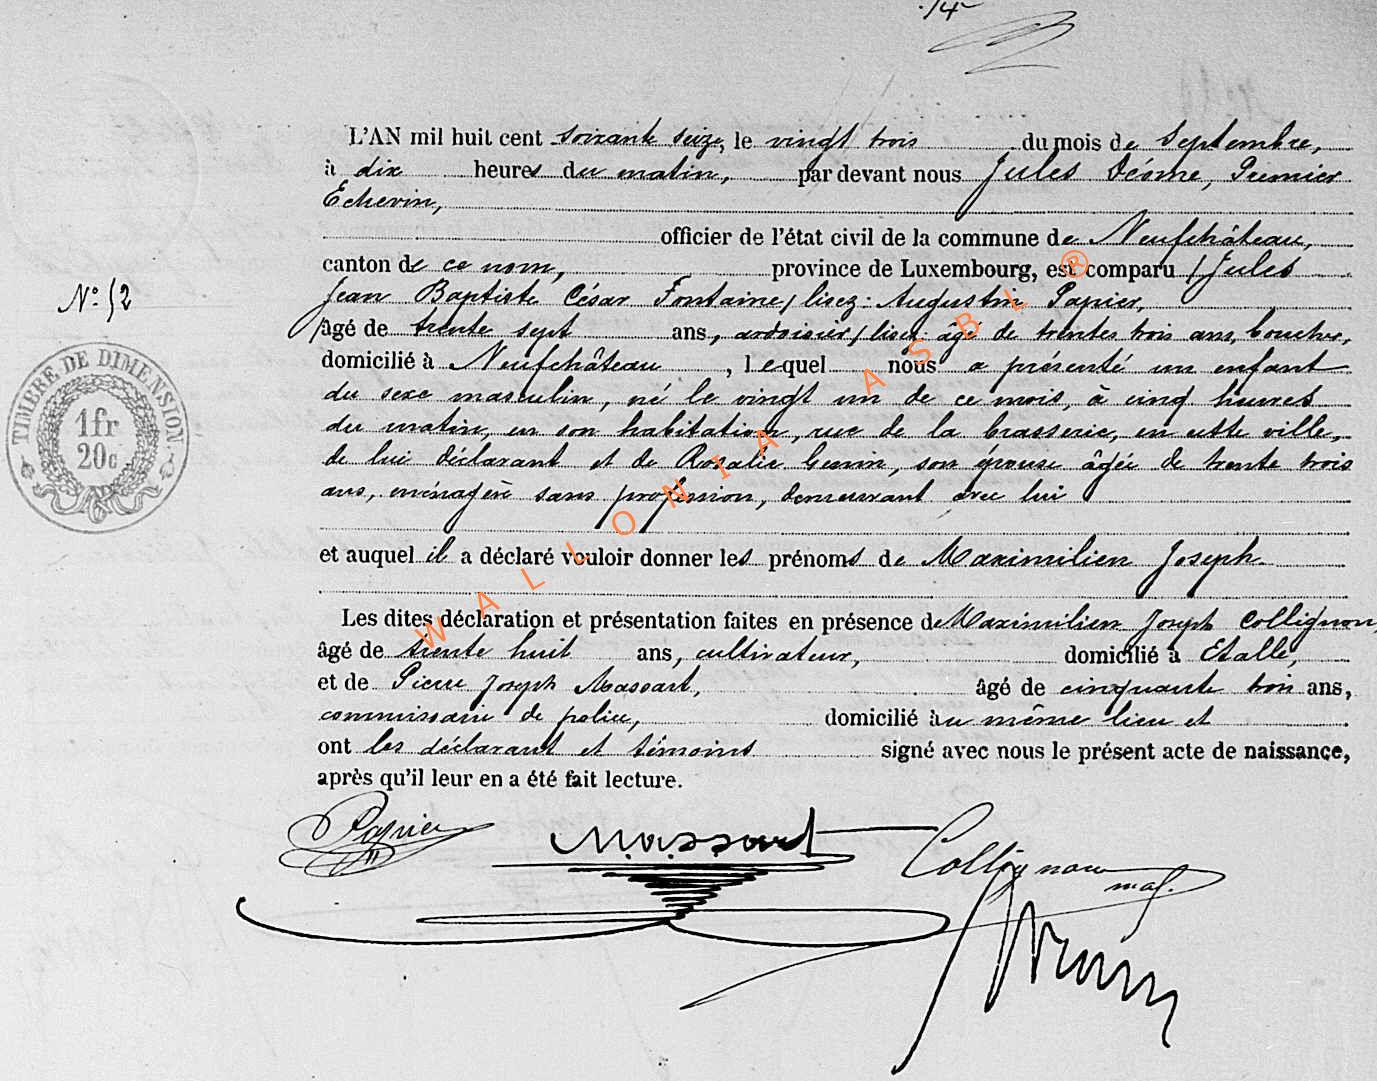 14
L'AN mil huit cent soixante seize, le vingt trois du mois de Septembre,
à dix heures du matin, par devant nous Jules Déome, Premier
Echevin,
officier de l'état civil de la commune de Neufchâteau,
canton de ce nom, province de Luxembourg, est comparu / Jules
N° 52
Jean Baptiste César Fontaine / lisez: Augustin Papier,
/ âgé de trente sept ans, ardoisier / lisez: âgé de trentes trois ans, boucher,
domicilié à Neufchâteau, lequel nous a présenté un enfant
du sexe masculin, né le vingt un de ce mois, à cinq heures
du matin, en son habitation, rue de la brasserie, en cette ville,
de lui déclarant et de Rosalie son épouse âgée de trente trois
ans, ménagère sans profession, demeurant avec lui
et auquel il a déclaré vouloir donner les prénoms de Maximilien Joseph
Les dites déclaration et présentation faites en présence de Maximilien Joseph Collignon,
âgé de trente huit ans, cultivateur, domicilié à Etalle,
et de Pierre Joseph Massart, âgé de cinquante trois ans,
commissaire de police, domicilié au même lieu et
ont les déclarant et témoins signé avec nous le présent acte de naissance,
après qu'il leur en a été fait lecture.
TIMBRE DE DIMENSION
1fr
20c
Papier Massart Collignon
WALLONIA ASBL ®